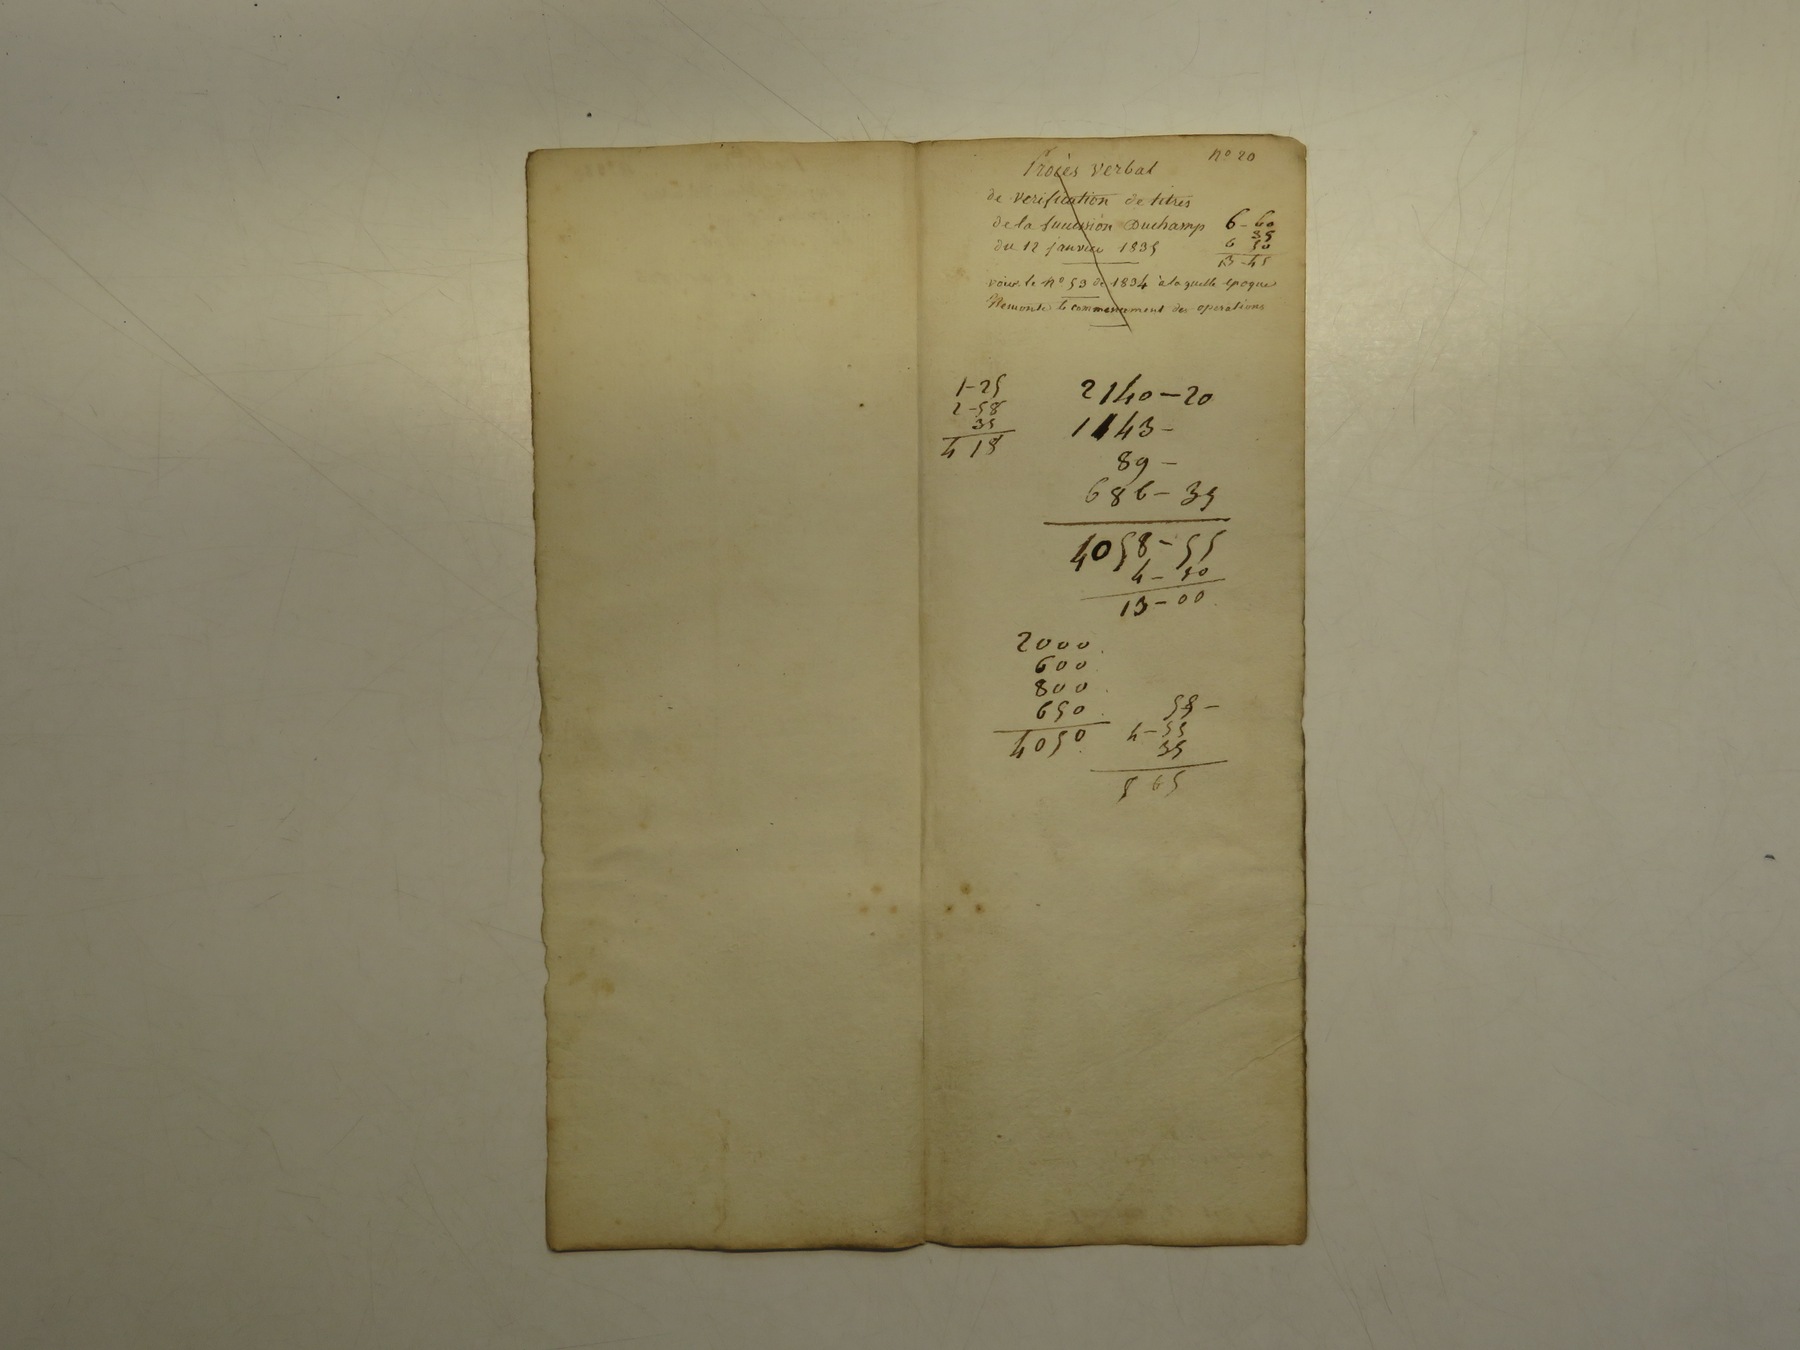 n° 20
Procès verbal
de verification de titres
de la succession Duchamp
du 12 janvier 1835
6 - 60
35
6 50
13 - 45
voir le n° 53 de 1834 à laquelle époque
Remonte le commencement des operations
1 - 25
2 - 58
35
4 18
2140 - 20
1143 -
89 -
686 - 35
4058 - 55
4 - 50
13 - 00
2000
600
800
650
4050
58 -
4 - 55
35
5 65